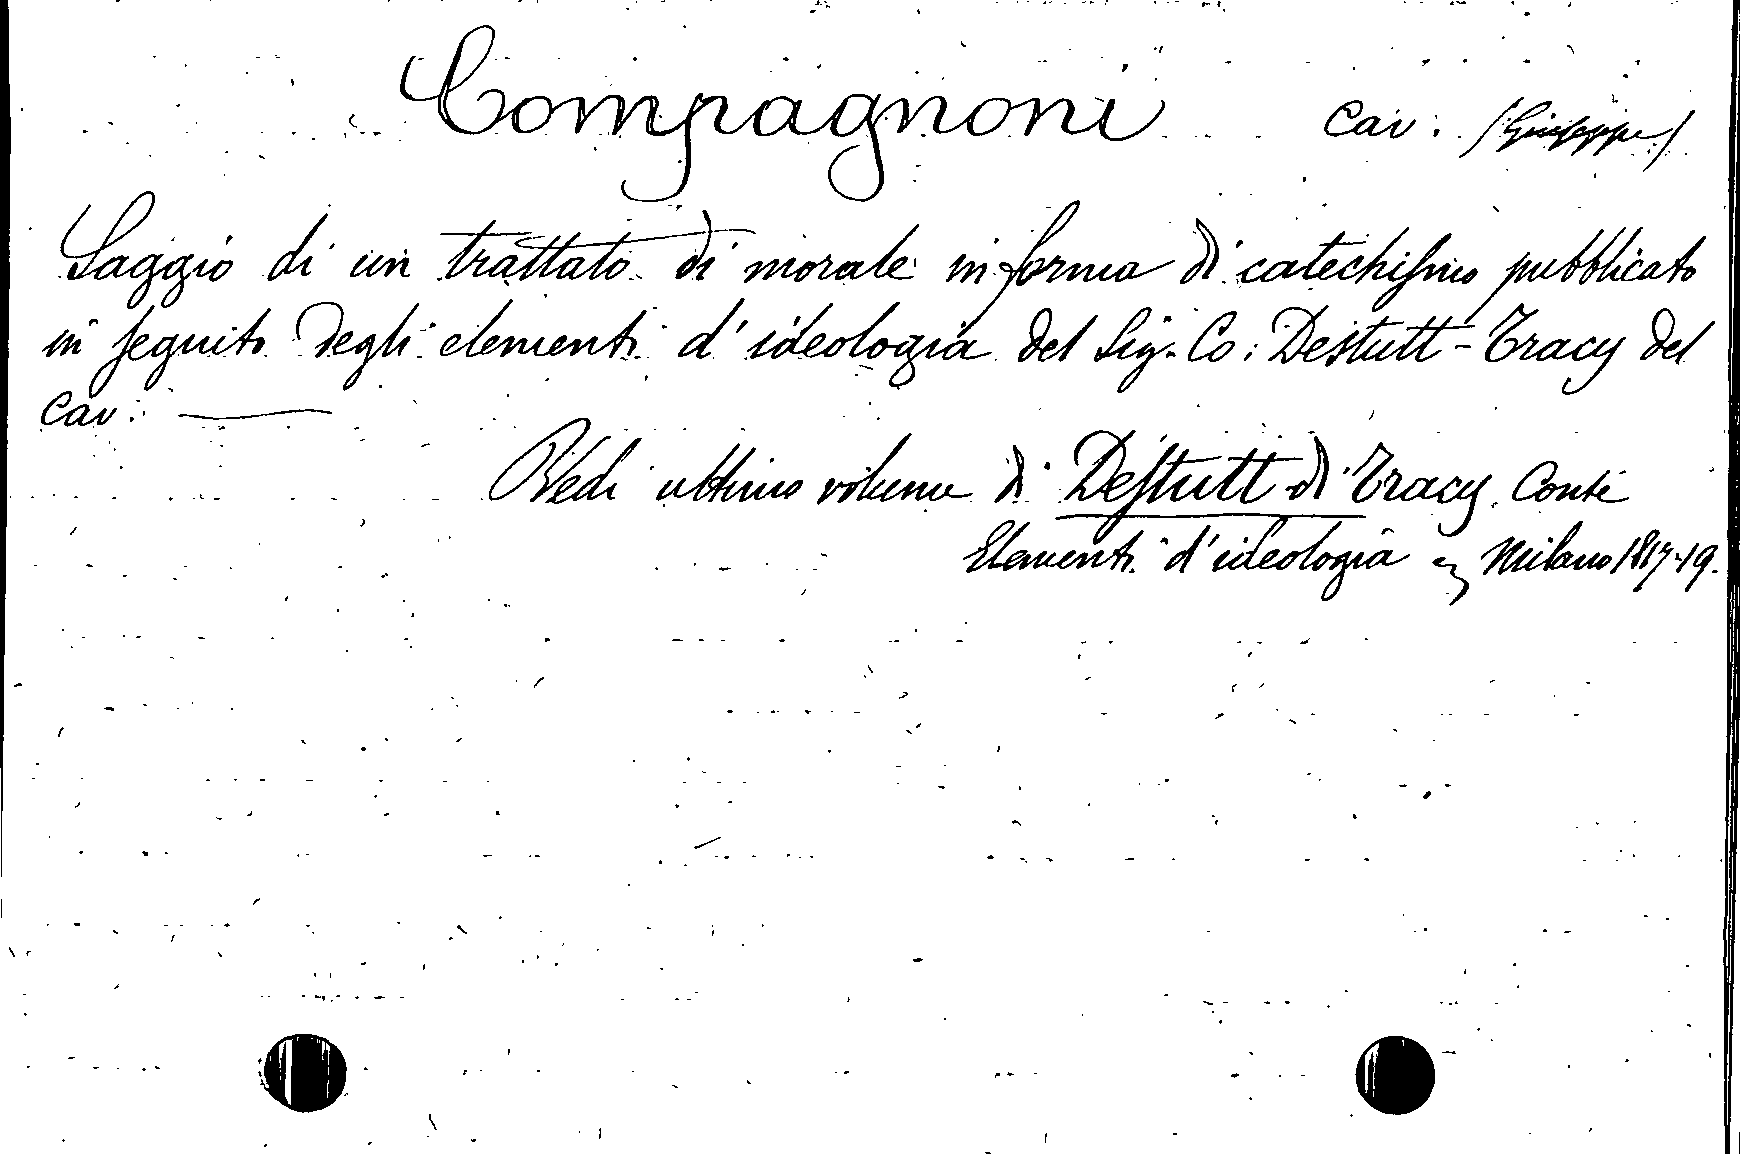 Compagnoni Cav: (Giuseppe)
Saggio di un trattato di morale in forma di catechismo pubblicato
in seguito degli elementi d'ideologia del Sig. Co: Destutt-Tracy del
Cav: ———
Vedi ultimo volume di Destutt di Tracy Conte
Elementi d'ideologia Milano 1817-19.